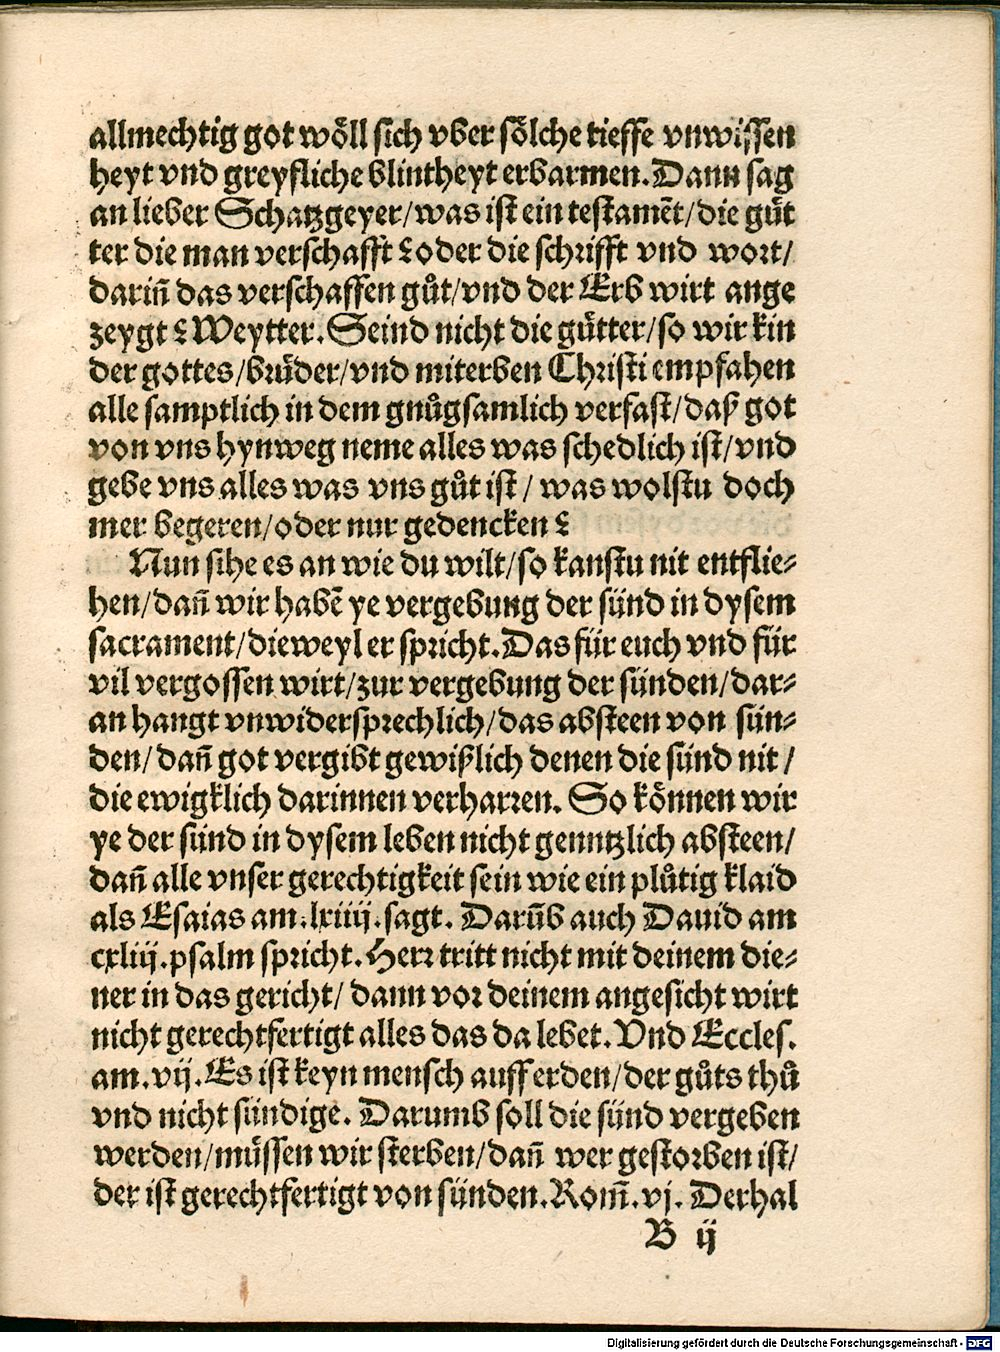 allmechtig got wöll sich vber sölche tieffe vnwissen
heyt vnd greyfliche blintheyt erbarmen. Dann sag
an lieber Schatzgeyer/was ist ein testamēt/die guͤt
ter die man verschafft? oder die schrifft vnd wort/
dariñ das verschaffen guͦt/vnd der Erb wirt ange
zeygt? Weytter. Seind nicht die guͤtter/so wir kin
der gottes/bruͤder/vnd miterben Christi empfahen
alle samptlich in dem gnuͦgsamlich verfast/daß got
von vns hynweg neme alles was schedlich ist/vnd
gebe vns alles was vns guͦt ist/ was wolstu doch
mer begeren/oder nur gedencken?
Nun sihe es an wie du wilt/so kanstu nit entflie⸗
hen/dañ wir habē ye vergebung der sünd in dysem
sacrament/dieweyl er spricht. Das für euch vnd für
vil vergossen wirt/zur vergebung der sünden/dar⸗
an hangt vnwidersprechlich/das absteen von sün⸗
den/dañ got vergibt gewißlich denen die sünd nit/
die ewigklich darinnen verharren. So können wir
ye der sünd in dysem leben nicht genntzlich absteen/
dañ alle vnser gerechtigkeit sein wie ein pluͦtig klaid
als Esaias am.lxiiij.sagt. Darūb auch Dauid am
cxliij.psalm spricht. Herr tritt nicht mit deinem die⸗
ner in das gericht/ dann vor deinem angesicht wirt
nicht gerechtfertigt alles das da lebet. Vnd Eccles.
am.vij.Es ist keyn mensch auff erden/der guͦts thuͦ
vnd nicht sündige. Darumb soll die sünd vergeben
werden/muͤssen wir sterben/dañ wer gestorben ist/
der ist gerechtfertigt von sünden.Rom̄.vj. Derhal
B ij
Digitalisierung gefördert durch die Deutsche Forschungsgemeinschaft - DFG